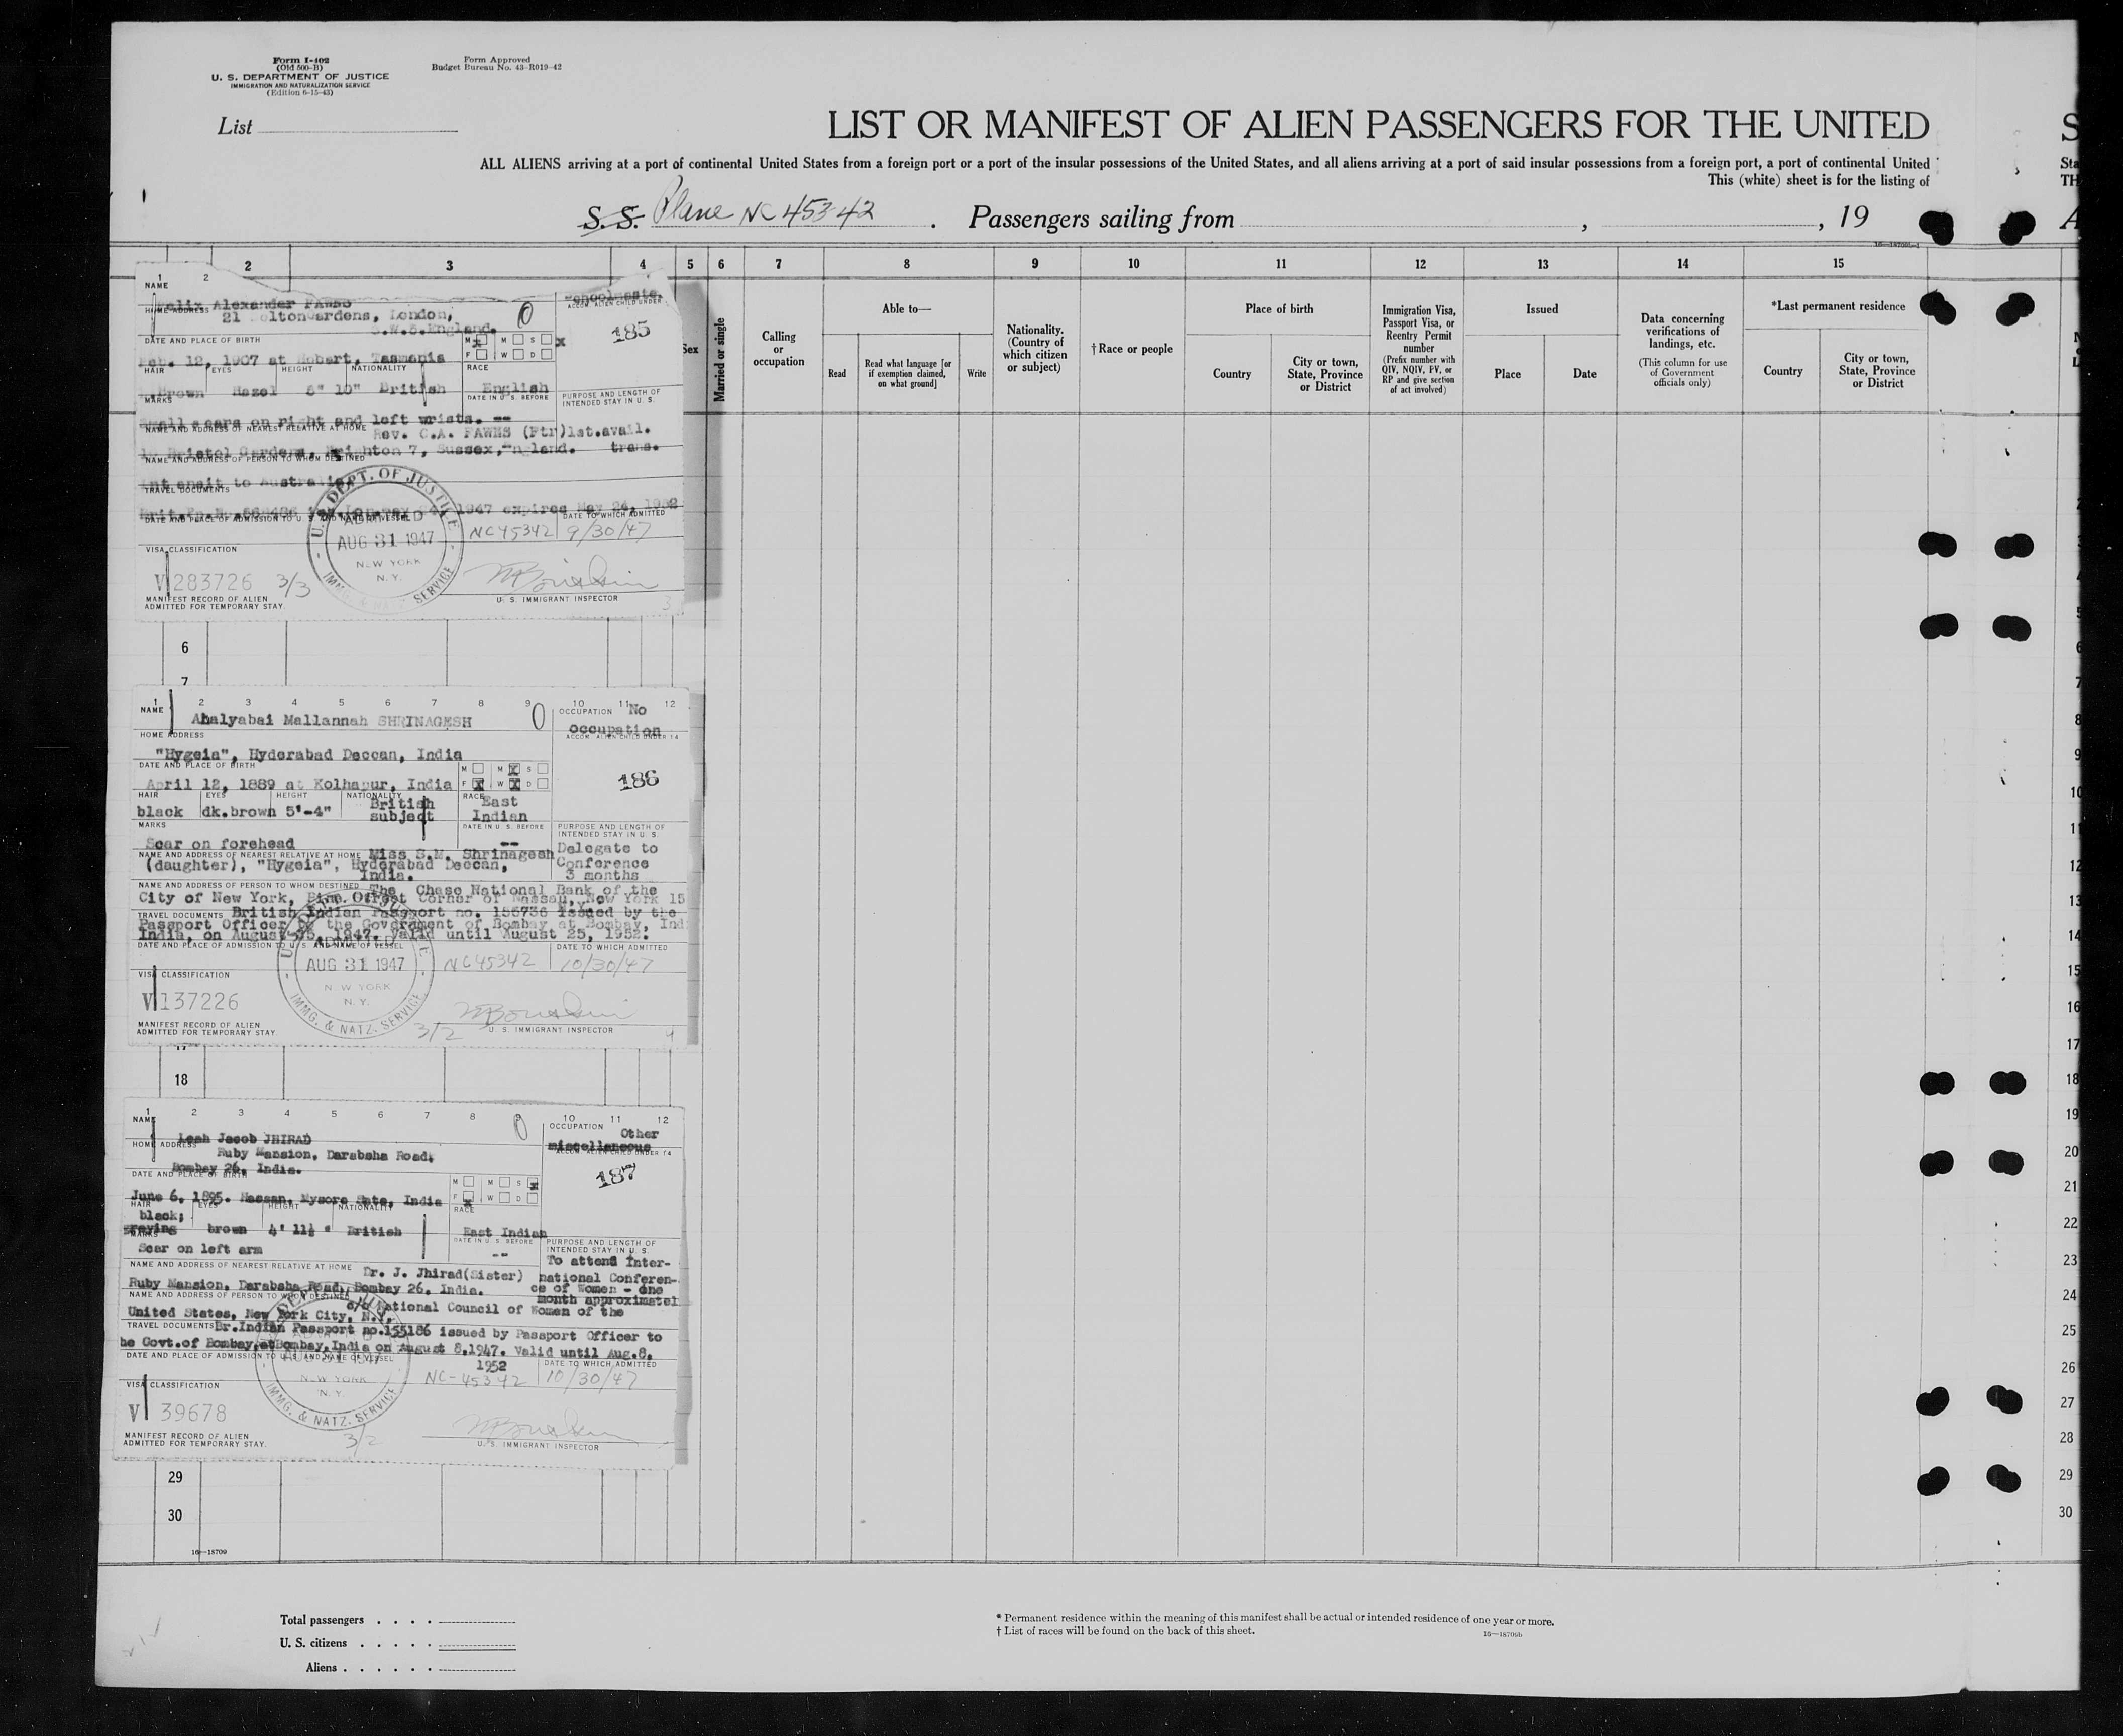 Form I-402
(Old 500-B)
U. S. DEPARTMENT OF JUSTICE
IMMIGRATION AND NATURALIZATION SERVICE
(Edition 6-15-43)
Form Approved
Budget Bureau No. 43-R019-42
List
LIST OR MANIFEST OF ALIEN PASSENGERS FOR THE UNITED
ALL ALIENS arriving at a port of continental United States from a foreign port or a port of the insular possessions of the United States, and all aliens arriving at a port of said insular possessions from a foreign port, a port of continental United
This (white) sheet is for the listing of
S. S. Plane NC 45342 . Passengers sailing from , , 19
2 3 4 5 6 7 8 9 10 11 12 13 14 15
Sex
Married or single
Calling or occupation
Able to—
Read
Read what language [or if exemption claimed, on what ground]
Write
Nationality. (Country of which citizen or subject)
†Race or people
Place of birth
Country
City or town, State, Province or District
Immigration Visa, Passport Visa, or Reentry Permit number
(Prefix number with QIV, NQIV, PV, or RP and give section of act involved)
Issued
Place
Date
Data concerning verifications of landings, etc.
(This column for use of Government officials only)
*Last permanent residence
Country
City or town, State, Province or District
1 2
NAME
Felix Alexander FAWNS
HOME ADDRESS
21 Gardens, London,
S.W.5.England.
ACCOM. ALIEN CHILD UNDER
185
DATE AND PLACE OF BIRTH
M M S
F W D
Feb. 12, 1907 at Hobart, Tasmania
HAIR EYES HEIGHT NATIONALITY RACE
Brown Hazel 5" 10" British English
MARKS DATE IN U. S. BEFORE PURPOSE AND LENGTH OF INTENDED STAY IN U. S.
Small scars on right and left wrists. --
NAME AND ADDRESS OF NEAREST RELATIVE AT HOME
Rev. C.A. FAWNS (Ftr) 1st.avail.
Bristol Gardens, Brighton 7, Sussex, England. trans.
NAME AND ADDRESS OF PERSON TO WHOM DESTINED
to Australia
TRAVEL DOCUMENTS
1947 expires May 24, 1952
DATE AND PLACE OF ADMISSION TO U. S. AND NAME OF VESSEL
DATE TO WHICH ADMITTED
U. S. DEPT. OF JUSTICE
ADMITTED
AUG 31 1947
NEW YORK
N. Y.
IMMG. & NATZ. SERVICE
NC45342 9/30/47
VISA CLASSIFICATION
V 283726 3/3
MANIFEST RECORD OF ALIEN
ADMITTED FOR TEMPORARY STAY.
U. S. IMMIGRANT INSPECTOR
3
6
7
1 2 3 4 5 6 7 8 9 10 11 12
NAME
Ahalyabai Mallannah SHRINAGESH
0
OCCUPATION No
Occupation
ACCOM. ALIEN CHILD UNDER 14
HOME ADDRESS
"Hygeia", Hyderabad Deccan, India
DATE AND PLACE OF BIRTH
M M X S
F X W X D
April 12, 1889 at Kolhapur, India
186
HAIR EYES HEIGHT NATIONALITY RACE
black dk.brown 5'-4" British subject East Indian
MARKS DATE IN U. S. BEFORE PURPOSE AND LENGTH OF INTENDED STAY IN U. S.
Scar on forehead --
Delegate to
Conference
3 months
NAME AND ADDRESS OF NEAREST RELATIVE AT HOME
Miss S.M. Shrinagesh
(daughter), "Hygeia", Hyderabad Deccan,
India.
NAME AND ADDRESS OF PERSON TO WHOM DESTINED
The Chase National Bank of the
City of New York, Pine Street Corner of Nassau, New York 15
N.Y.
TRAVEL DOCUMENTS
British Indian Passport no. 156736 issued by the
Passport Officer to the Government of Bombay at Bombay, Ind
India, on August 25, 1947. Valid until August 25, 1952.
DATE AND PLACE OF ADMISSION TO U. S. AND NAME OF VESSEL
DATE TO WHICH ADMITTED
AUG 31 1947
NEW YORK
N. Y.
IMMG. & NATZ. SERVICE
NC45342 10/30/47
VISA CLASSIFICATION
V 137226
3/2
MANIFEST RECORD OF ALIEN
ADMITTED FOR TEMPORARY STAY.
U. S. IMMIGRANT INSPECTOR
4
17
18
1 2 3 4 5 6 7 8 9 10 11 12
NAME
Leah Jacob JHIRAD
0
OCCUPATION Other
miscellaneous
ACCOM. ALIEN CHILD UNDER 14
HOME ADDRESS
Ruby Mansion, Darabsha Road,
Bombay 26, India.
DATE AND PLACE OF BIRTH
M M S X
F X W D
187
June 6, 1895. Hassan, Mysore State, India
HAIR EYES HEIGHT NATIONALITY RACE
black;
graying brown 4' 11½ " British East Indian
MARKS DATE IN U. S. BEFORE PURPOSE AND LENGTH OF INTENDED STAY IN U. S.
Scar on left arm --
To attend Inter-
national Conferen-
ce of Women - one
month approximatel
NAME AND ADDRESS OF NEAREST RELATIVE AT HOME
Dr. J. Jhirad(Sister)
Ruby Mansion, Darabsha Road, Bombay 26, India.
NAME AND ADDRESS OF PERSON TO WHOM DESTINED
c/o National Council of Women of the
United States, New York City, N.Y.
TRAVEL DOCUMENTS
Br.Indian Passport no.155186 issued by Passport Officer to
he Govt.of Bombay,at Bombay,India on August 8,1947. Valid until Aug.8,
1952
DATE AND PLACE OF ADMISSION TO U. S. AND NAME OF VESSEL
DATE TO WHICH ADMITTED
NEW YORK
N. Y.
IMMG. & NATZ. SERVICE
NC-45342 10/30/47
VISA CLASSIFICATION
V 39678
3/2
MANIFEST RECORD OF ALIEN
ADMITTED FOR TEMPORARY STAY.
U. S. IMMIGRANT INSPECTOR
29
30
16—18709
Total passengers
U. S. citizens
Aliens
* Permanent residence within the meaning of this manifest shall be actual or intended residence of one year or more.
† List of races will be found on the back of this sheet.
16—18709b
S
Sta
TH
A
2
3
4
5
6
7
8
9
10
11
12
13
14
15
16
17
18
19
20
21
22
23
24
25
26
27
28
29
30